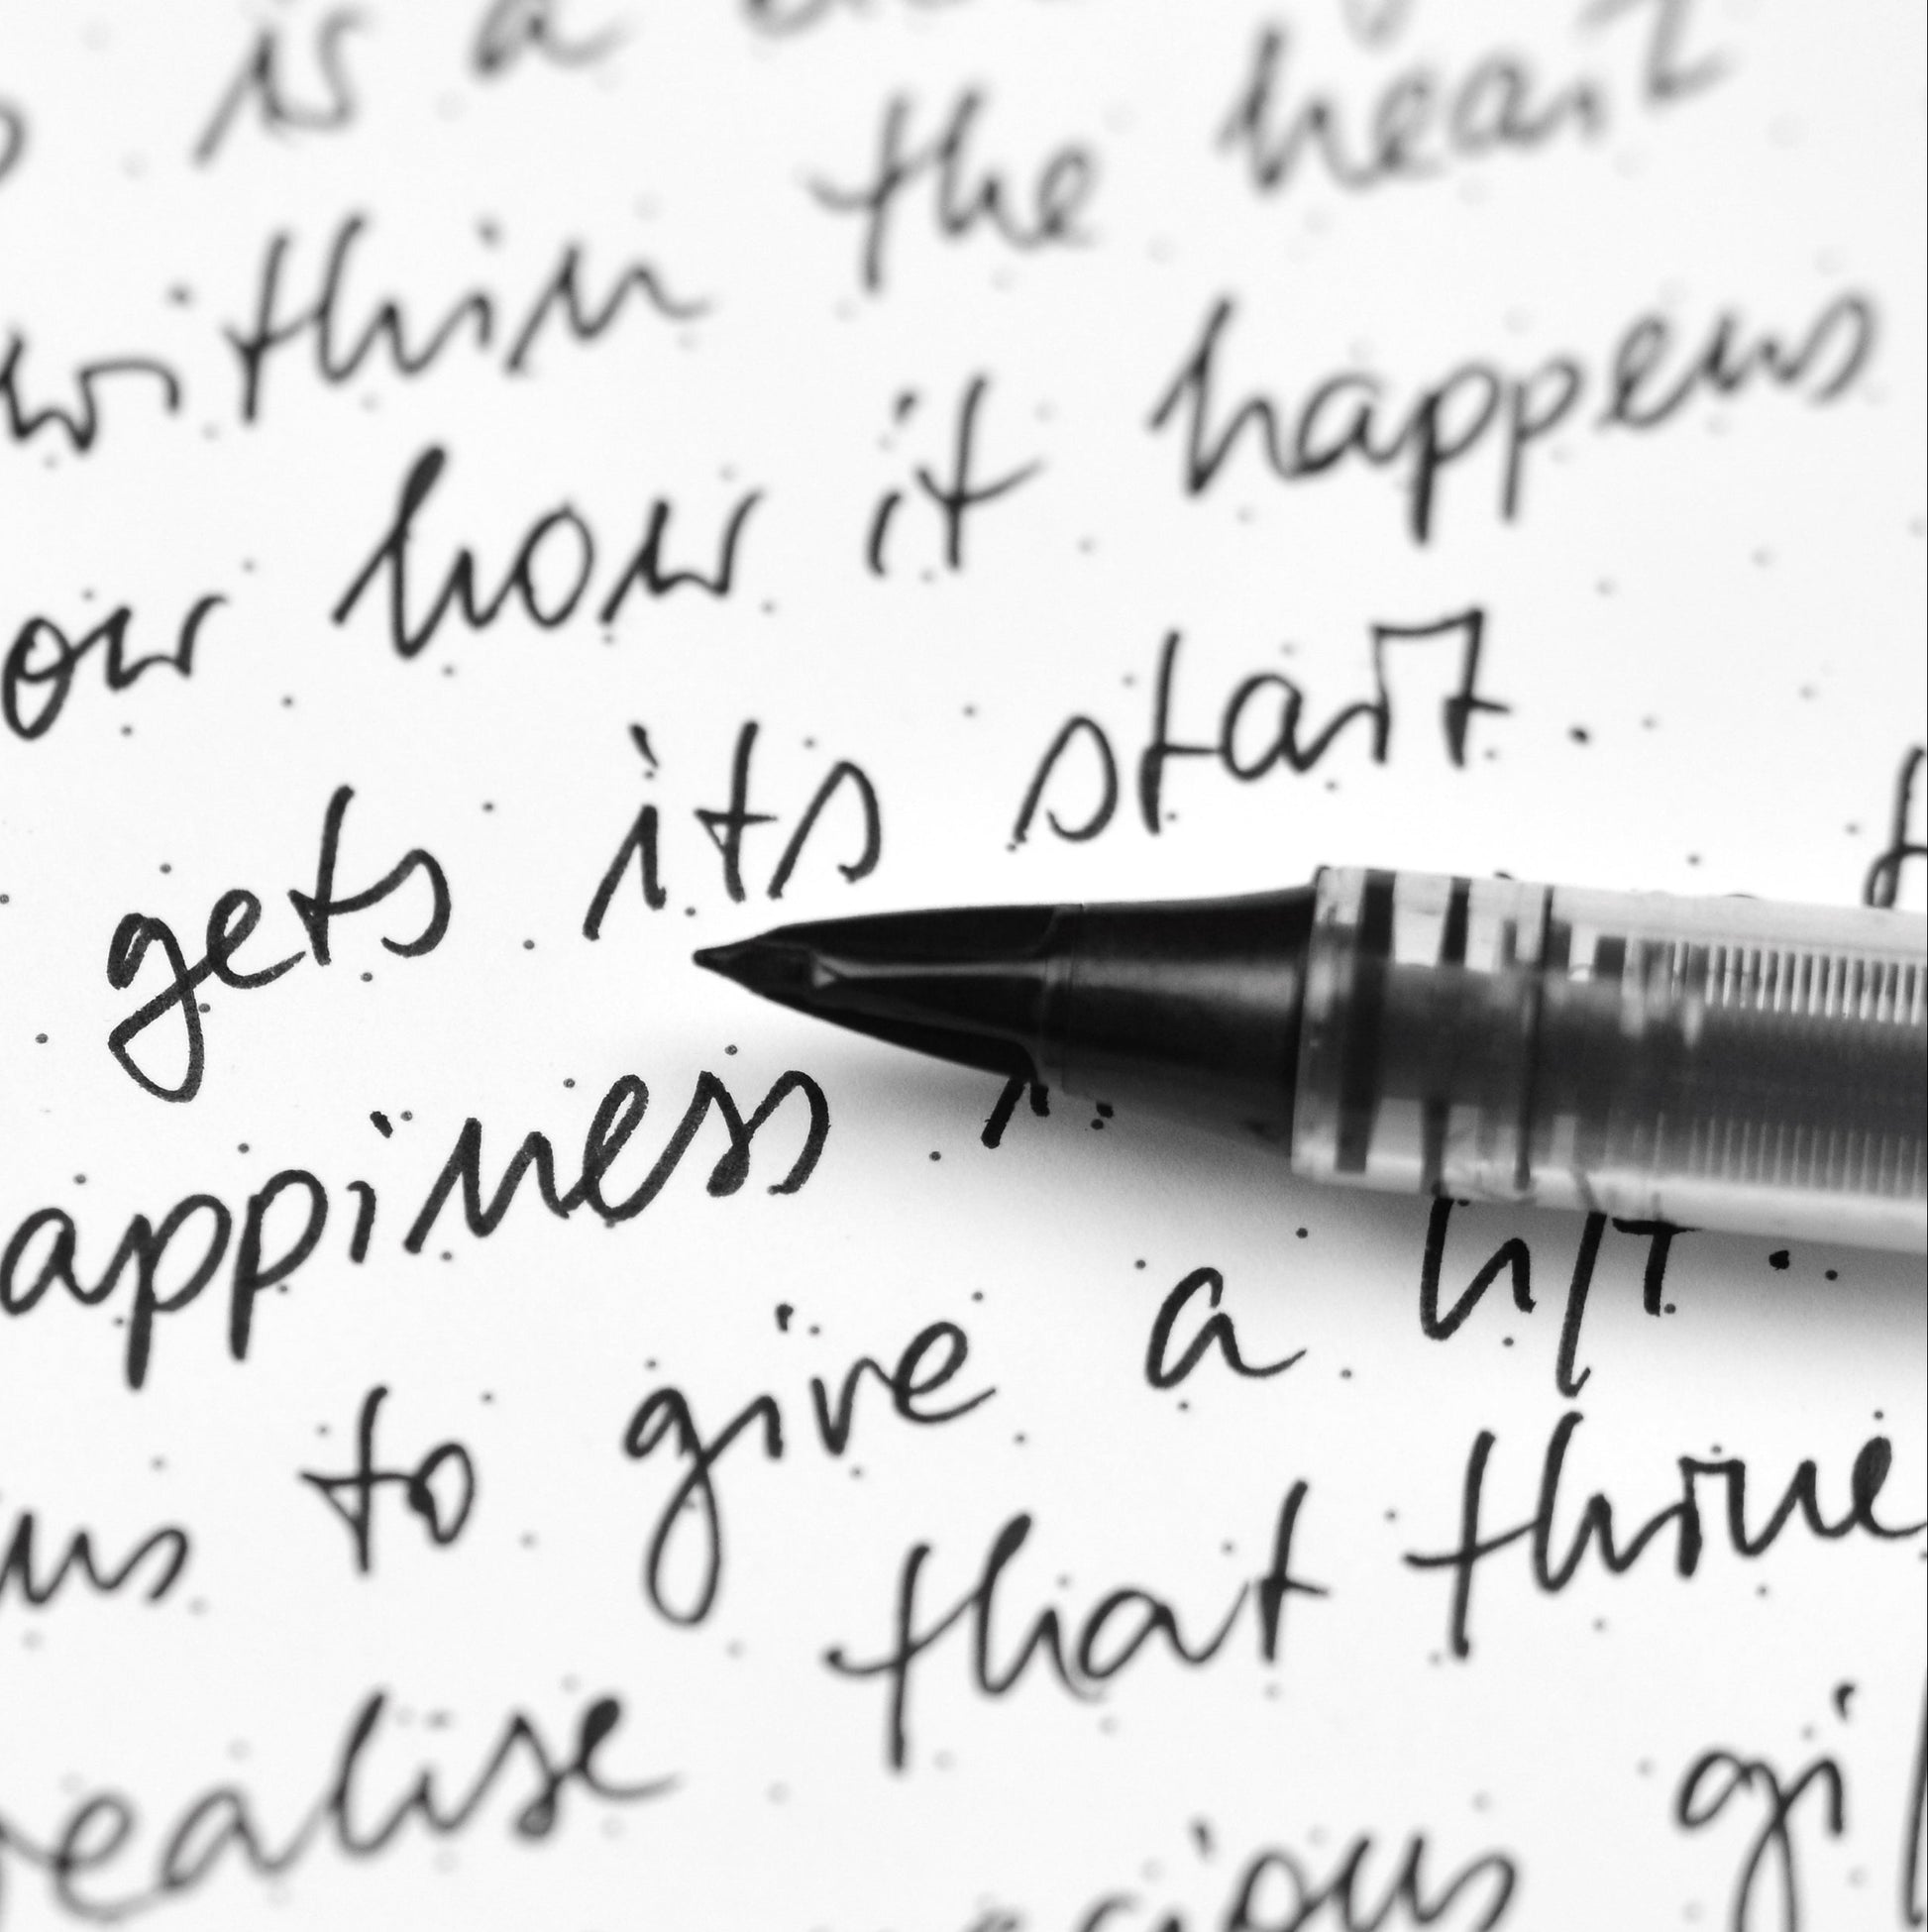 is a
within the heart
ow how it happens
gets its start.
appiness
to give a lift..
ealise that
gi